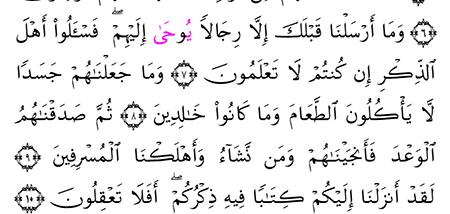 ﴿٦﴾ وَمَا أَرْسَلْنَا قَبْلَكَ إِلَّا رِجَالًا يُوحَىٰ إِلَيْهِمْ ۖ فَسْـَٔلُوا۟ أَهْلَ
ٱلذِّكْرِ إِن كُنتُمْ لَا تَعْلَمُونَ ﴿٧﴾ وَمَا جَعَلْنَـٰهُمْ جَسَدًا
لَّا يَأْكُلُونَ ٱلطَّعَامَ وَمَا كَانُوا۟ خَـٰلِدِينَ ﴿٨﴾ ثُمَّ صَدَقْنَـٰهُمُ
ٱلْوَعْدَ فَأَنجَيْنَـٰهُمْ وَمَن نَّشَآءُ وَأَهْلَكْنَا ٱلْمُسْرِفِينَ
﴿٩﴾ لَقَدْ أَنزَلْنَا إِلَيْكُمْ كِتَـٰبًا فِيهِ ذِكْرُكُمْ ۖ أَفَلَا تَعْقِلُونَ ﴿١٠﴾